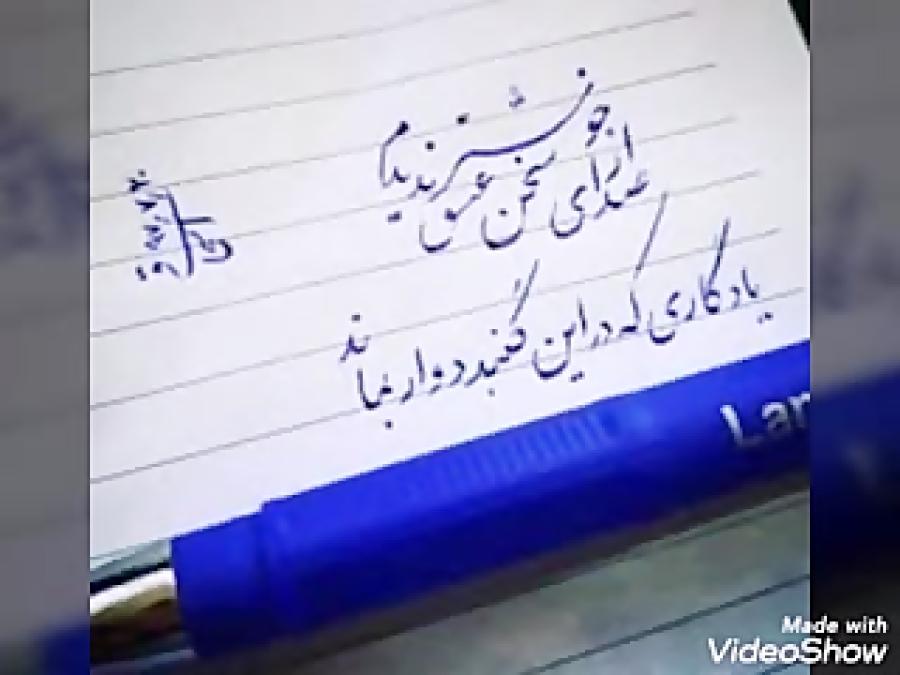 از صدای سخن عشق ندیدم خوشتر
یادگاری که در این گنبد دوار بماند
Made with
VideoShow